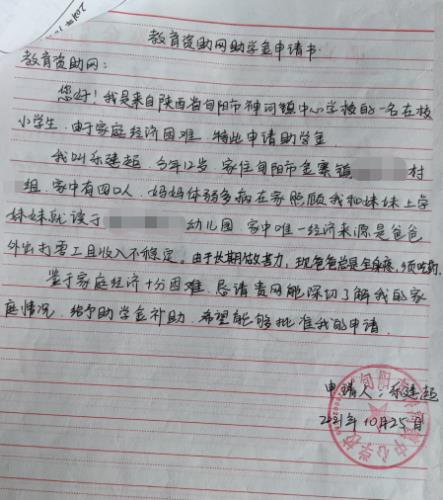 教育资助网助学金申请书
教育资助网：
您好！我是来自陕西省旬阳市神河镇中心学校的一名在校
小学生．由于家庭经济困难．特此申请助学金．
我叫乐建超．今年12岁．家住旬阳市金寨镇 村
组．家中有四口人．妈妈体弱多病在家照顾我和妹妹上学
妹妹就读于 幼儿园．家中唯一经济来源是爸爸
外出打零工且收入不稳定．由于长期做苦力，现爸爸总是全身疼，须吃药．
鉴于家庭经济十分困难．恳请贵网能深切了解我的家
庭情况．给予助学金补助．希望能够批准我的申请．
申请人：乐建超
2021年10月25日